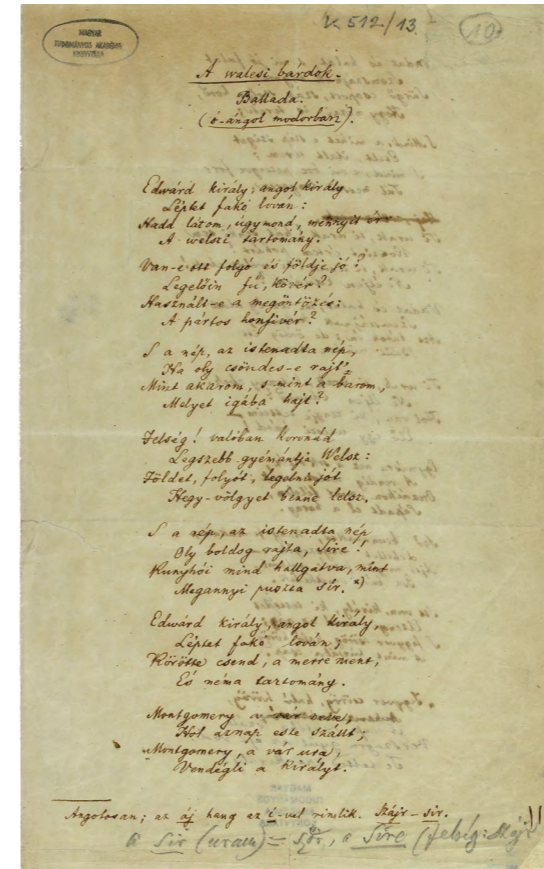 MAGYAR
TUDOMÁNYOS AKADÉMIA
KÖNYVTÁRA
K 512/13
10
A walesi bárdok.
Ballada.
(ó-ángol modorban).
Edvárd király, angol király
Léptet fakó lován:
Hadd látom, úgymond, mennyit ér
A welszi tartomány.
Van-e ott folyó és földje jó?
Legelőin fű, kövér?
Használt-e a megöntözés:
A pártos honfivér?
S a nép, az istenadta nép,
Ha oly csöndes-e rajt'
Mint akarom, s mint a barom,
Melyet igába hajt?
Felség! valóban koronád
Legszebb gyémántja Welsz:
Földet, folyót, legelni jót
Hegy-völgyet benne lelsz.
S a nép, az istenadta nép
Oly boldog rajta, Sire!
Kunyhói mind hallgatva, mint
Megannyi puszta sír. *)
Edvárd király, angol király,
Léptet fakó lován;
Körötte csend, a merre ment,
És néma tartomány.
Montgomery a vár neve,
Hol aznap este szállt;
Montgomery, a vár ura,
Vendégli a királyt.
Angolosan; az áj hang az i-vel rímlik. Szájr – sir.
a Sir (uram) = ször, a Sire (felség: Szájr!)